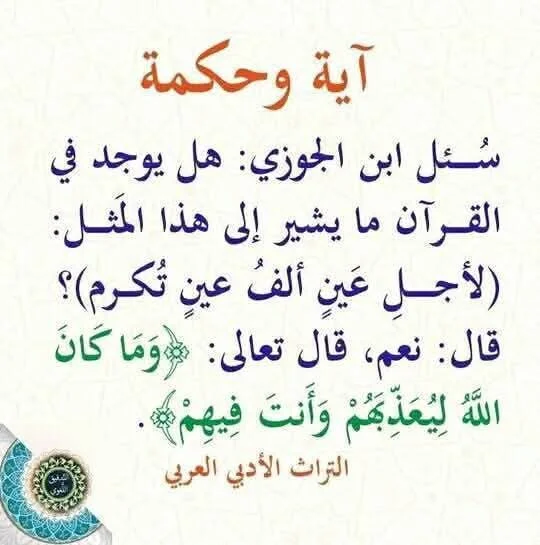 آية وحكمة
سُـئل ابن الجوزي: هل يوجد في
القـرآن ما يشير إلى هذا المَثـل:
(لأجـلِ عَينٍ ألفُ عينٍ تُكـرم)؟
قال: نعم، قال تعالى: ﴿وَمَا كَانَ
اللَّهُ لِيُعَذِّبَهُمْ وَأَنتَ فِيهِمْ﴾.
التراث الأدبي العربي